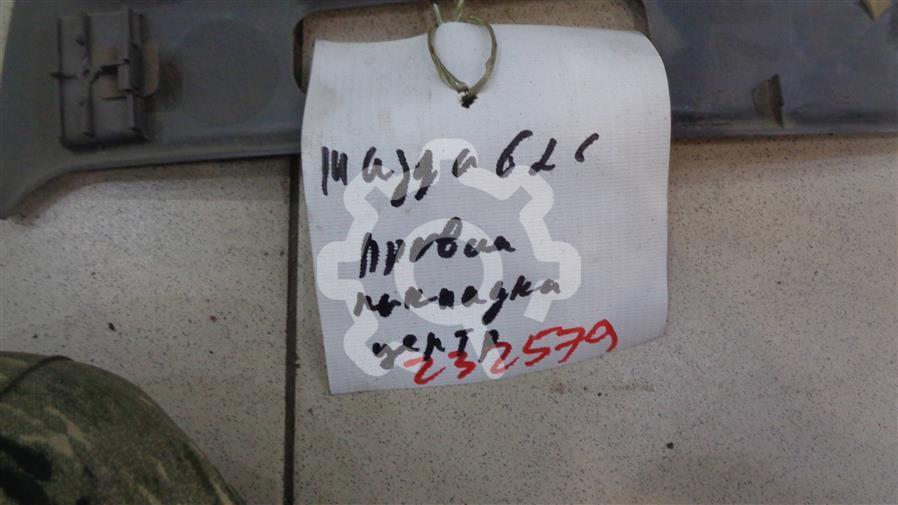 Мазда 626
правая
накладка
центр
232579